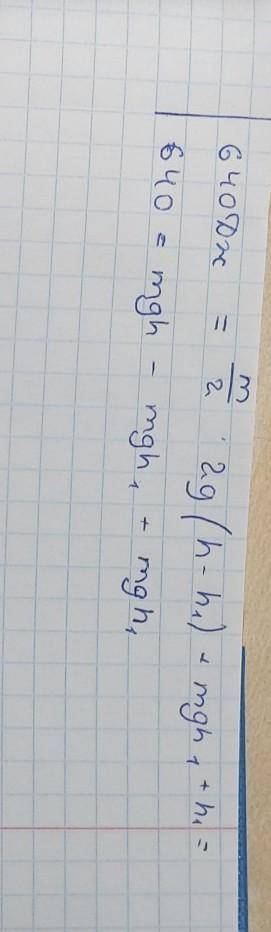 640Дж = m/2 · 2g(h - h₁) + mgh₁ + h₁ =
640 = mgh - mgh₁ + mgh₁